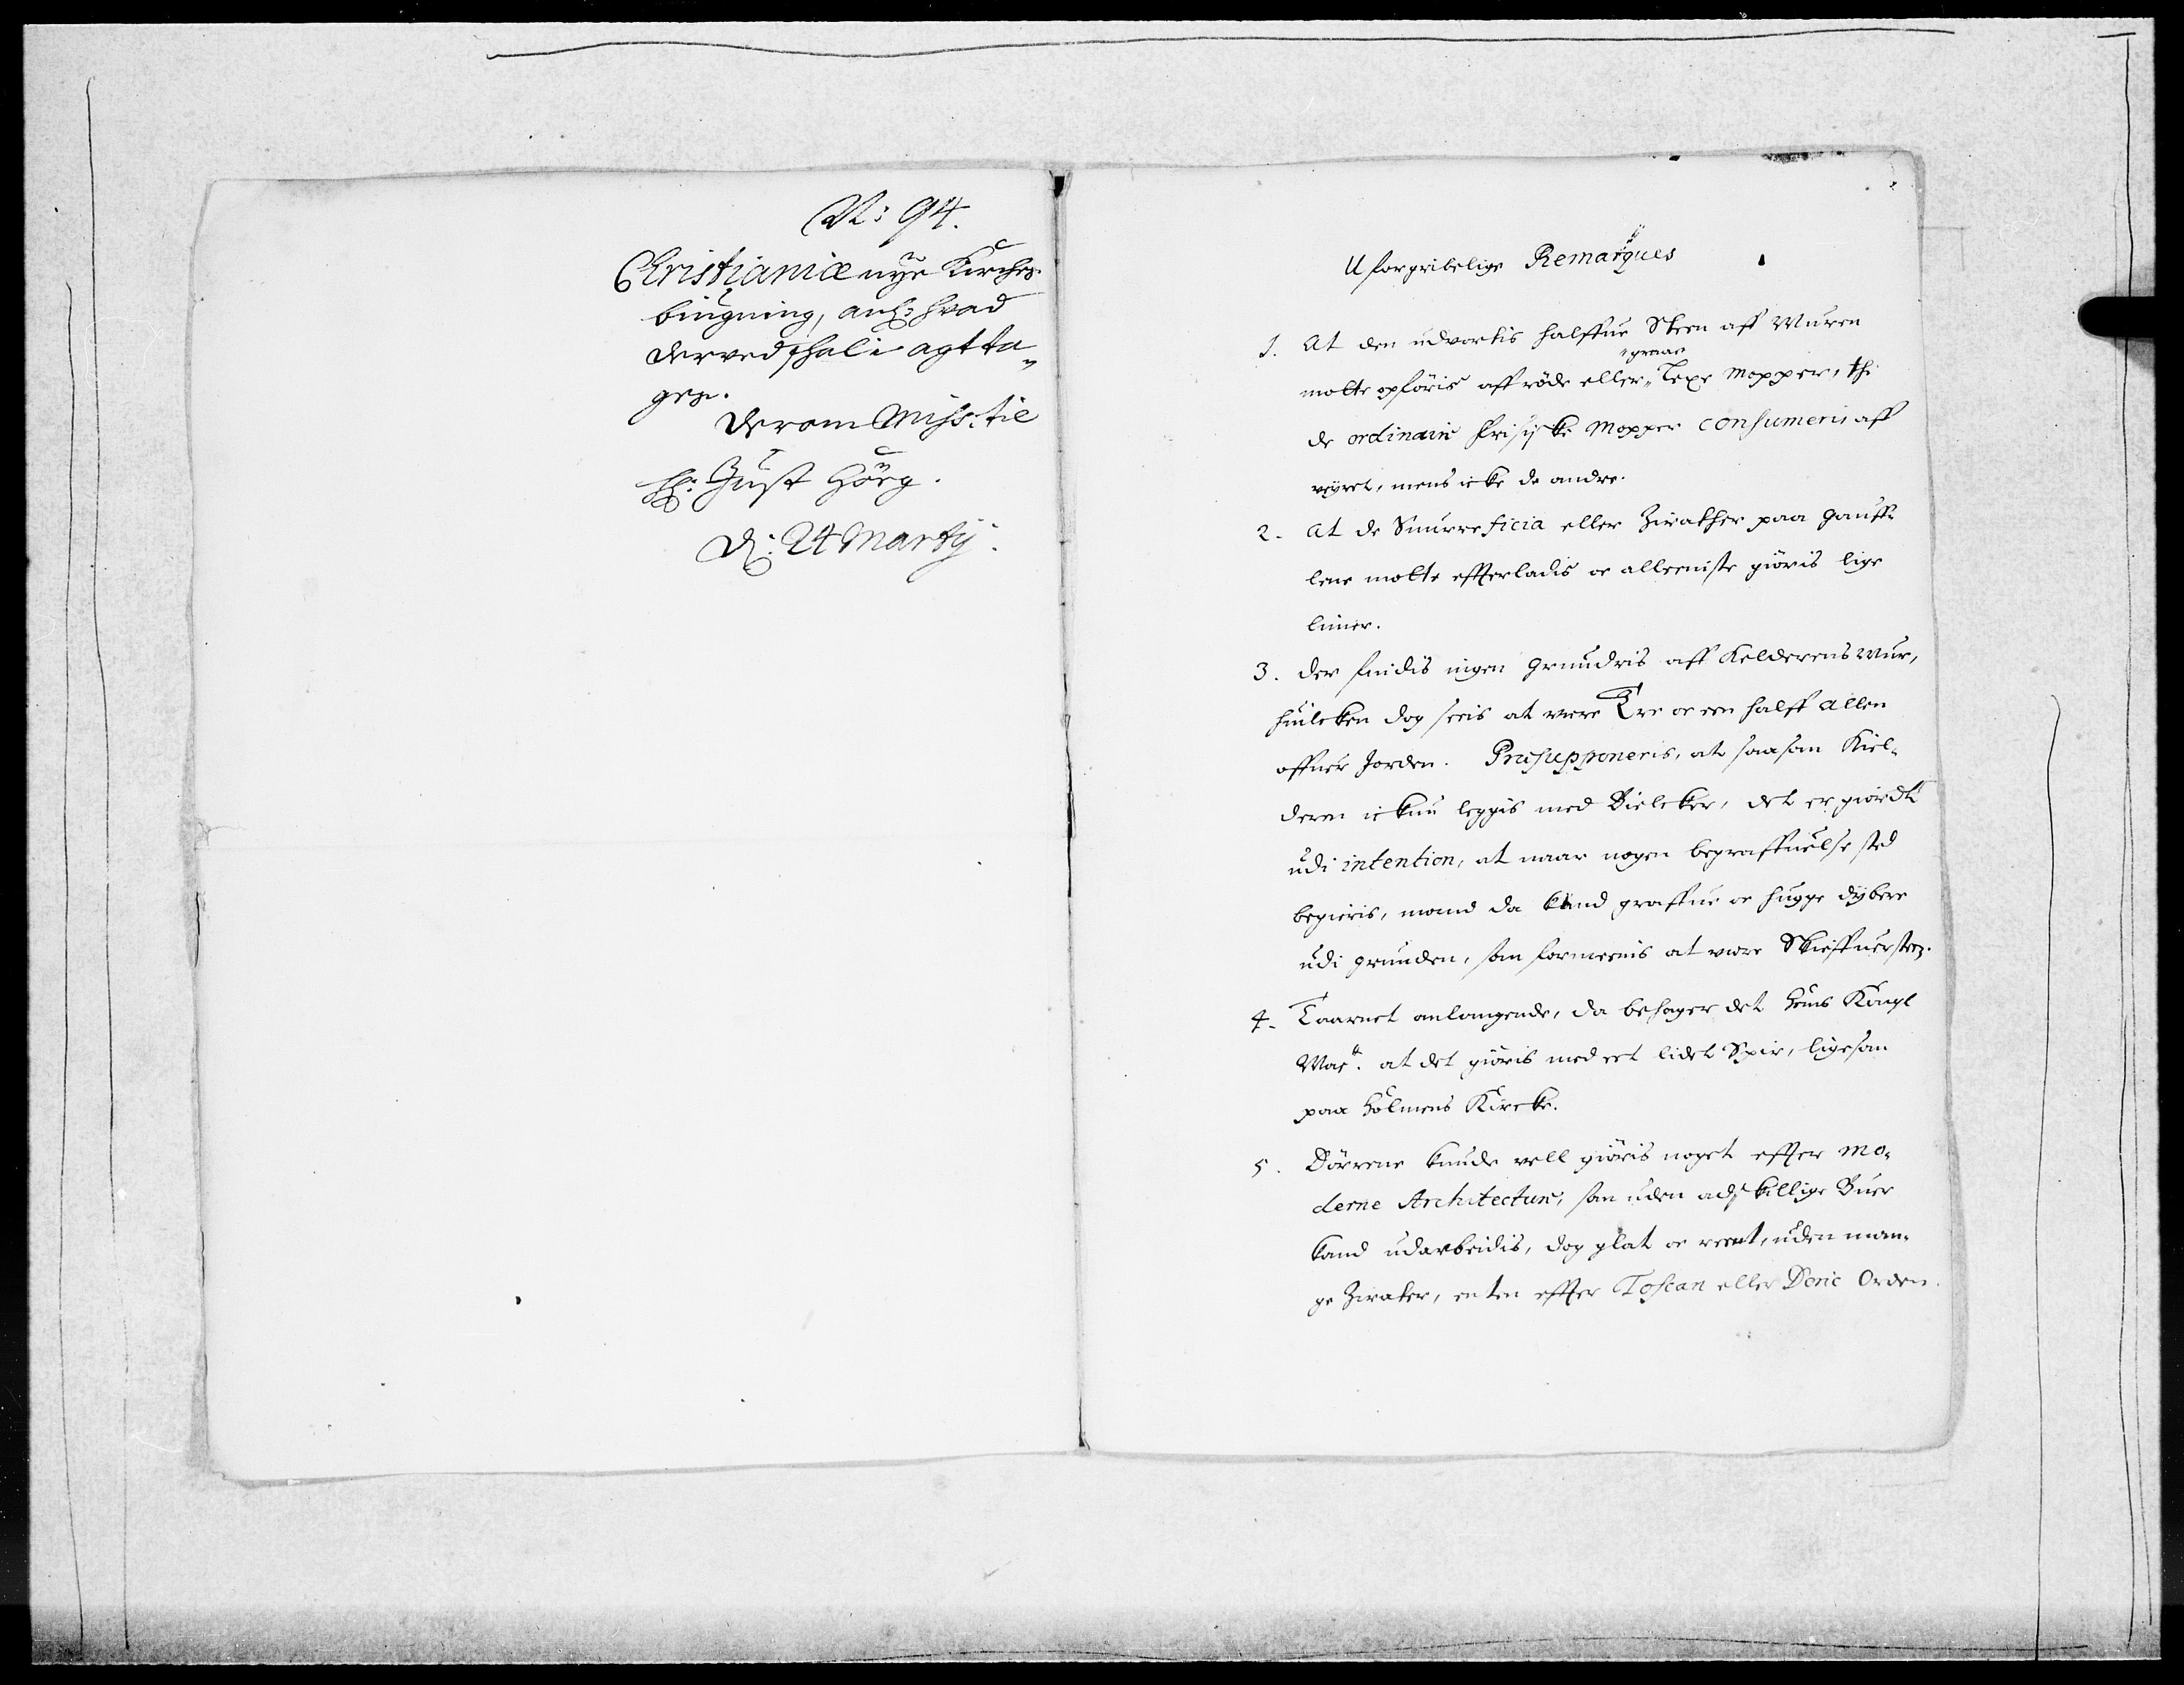 N: 94.
Christianiæ nye Kirches
bÿgning, anl: hvad
derved skal i agt ta„
ges.
Derom Miss: til
H: Gust Görg.
D: 24 Martij.
Uforgribelige Remarques
1. At den udvortis halffue Steen aff Muuren
graae
motte opföris aff röde eller Lexe Mopper, thi
de ordinaire frisiske Mopper consumeris aff
veyret, mens icke de andre.
2. At de Snurreficia eller Zirather paa Gauff„
lene motte effterladis oc alleeniste giöris lige
linier.
3. Der findis ingen Grundris aff Kelderens Muur,
huilcken dog seeis at være Tre oc een halff Allen
offuer Jorden. Præsupponeris, at saasom Kiel„
deren ickun leggis med Bielcker, det er giördt
udi intention, at naar nogen begraffuelse sted
begieris, mand da kand graffue oc hugge dybere
udi grunden, som formeenis at være Skieffuersteen.
4. Taarnet anlangende, da behager det Hans Kongl
Mayt. at det giöris med eet lidet Spir, ligesom
paa Holmens Kircke.
5. Dörrene kunde vell giöris noget effter mo„
derne Architectur, som uden adskillige Buer
kand udarbeidis, dog glat oc reent, uden man„
ge Zirater, enten effter Toscan eller Doric Orden.